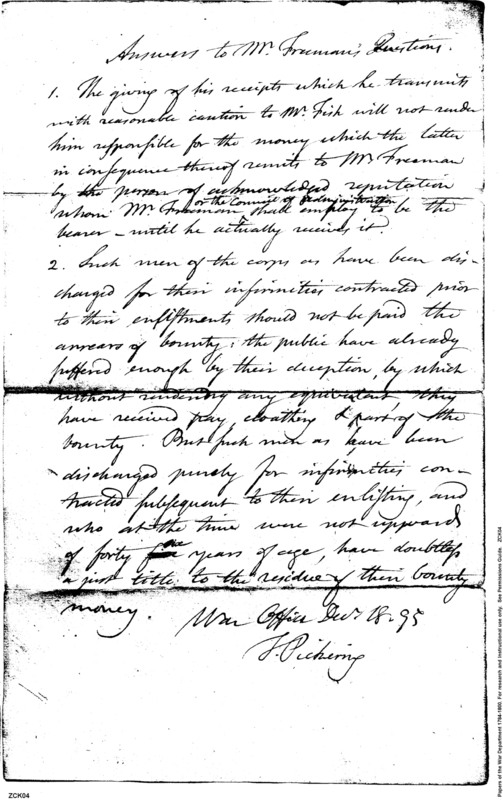 Answers to Mr. Freeman's Questions.
1. The giving of his receipts which he transmits
with reasonable caution to Mr. Fish will not render
him responsible for the money which the latter
in consequence thereof remits to Mr. Freeman
by the person of acknowledged reputation
or the Council of Administration
whom Mr. Freeman shall employ to be the
bearer – until he actually receives it.
2. Such men of the corps as have been dis-
charged for their infirmities contracted prior
to their enlistments should not be paid the
arrears of bounty: the public have already
suffered enough by their deception, by which
without rendering any equivalent, they
have received pay, cloathing & part of the
bounty. But such men as have been
discharged purely for infirmities con-
tracted subsequent to their enlisting, and
who at the time were not upwards
of forty years of age, have doubtless
a just title to the residue of their bounty
money.
War Office Decr. 18. 95
T. Pickering
ZCK04
Papers of the War Department 1784-1800. For research and instructional use only. See Permissions Guide. ZCK04